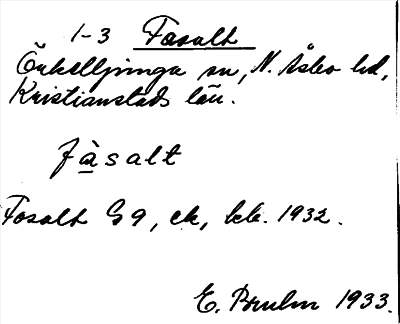 1-3 Fasalt
Örkelljunga sn, N. Åsbo hd,
Kristianstads län.
fàsalt
Fosalt G 9, ek, kb. 1932.
E. Bruhn 1933.